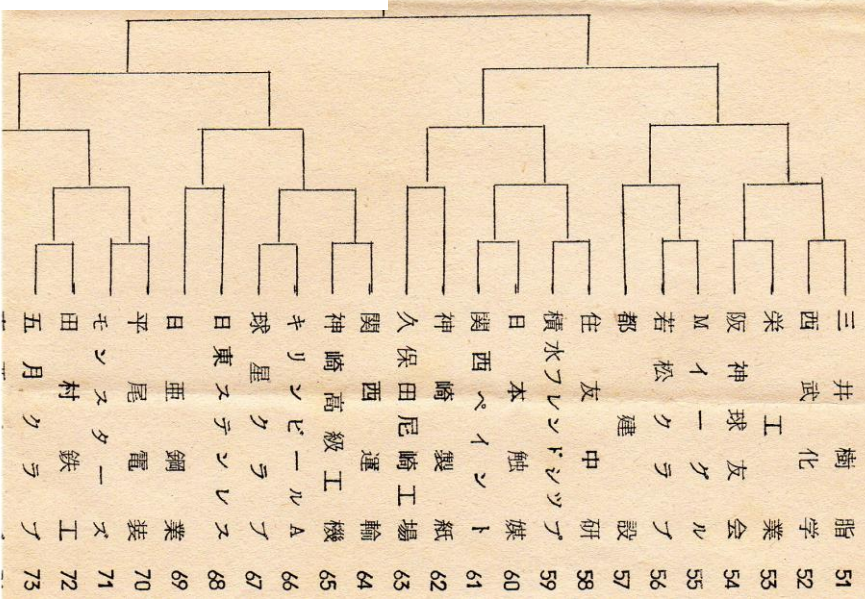 三井樹脂 51
西武化学 52
栄工業 53
阪神球友会 54
Mイーグル 55
若松クラブ 56
都建設 57
住友中研 58
積水フレンドシップ 59
日本触媒 60
関西ペイント 61
神崎製紙 62
久保田尼崎工場 63
関西運輸 64
神崎高級工機 65
キリンビールA 66
球星クラブ 67
日東ステンレス 68
日亜鋼業 69
平尾電装 70
モンスターズ 71
田村鉄工 72
五月クラブ 73